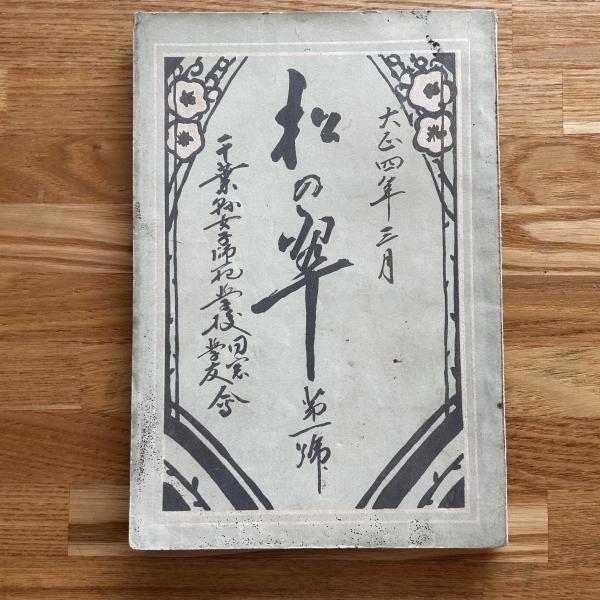 大正四年三月
松の翠
第一號
千葉縣女子師範学校
同窓
学友
會